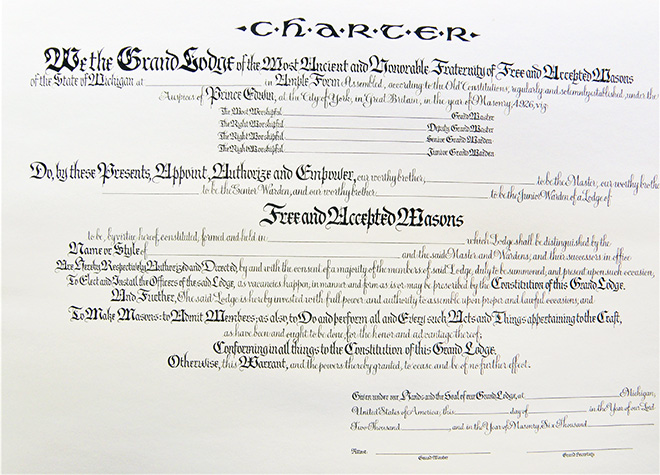 ·C·H·A·R·T·E·R·
We the Grand Lodge of the Most Ancient and Honorable Fraternity of Free and Accepted Masons
of the State of Michigan at ____ in Ample Form Assembled, according to the Old Constitutions, regularly and solemnly established, under the
Auspices of Prince Edwin, at the City of York, in Great Britain, in the year of Masonry 4926, viz:
The Most Worshipful ____ Grand Master
The Right Worshipful ____ Deputy Grand Master
The Right Worshipful ____ Senior Grand Warden
The Right Worshipful ____ Junior Grand Warden
Do, by these Presents, Appoint, Authorize and Empower, our worthy brother, ____ to be the Master, our worthy brothe
____ to be the Senior Warden, and our worthy brother ____ to be the Junior Warden of a Lodge of
Free and Accepted Masons
to be, by virtue hereof, constituted, formed and held in: ____ which Lodge shall be distinguished by the
Name or Style of ____ and the said Master and Wardens, and their successors in office
Are Hereby Respectively Authorized and Directed, by and with the consent of a majority of the members of said Lodge, duly to be summoned, and present upon such occasion,
To Elect and Install the Officers of the said Lodge, as vacancies happen, in manner and form as is or may be prescribed by the Constitution of this Grand Lodge.
And Further, The said Lodge is hereby invested with full power and authority to assemble upon proper and lawful occasions, and
To Make Masons: to Admit Members; as also, to Do and perform all and Every such Acts and Things appertaining to the Craft,
as have been and ought to be done, for the honor and advantage thereof;
Conforming in all things to the Constitution of this Grand Lodge.
Otherwise, this Warrant, and the powers thereby granted, to cease and be of no further effect.
Given under our Hands and the Seal of our Grand Lodge, at ____ Michigan,
United States of America, this ____ day of ____ in the Year of our Lord
Two Thousand ____, and in the Year of Masonry, Six Thousand ____
Attest: ____ ____
Grand Master Grand Secretary